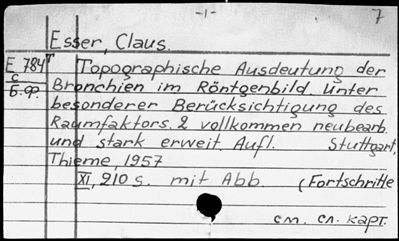 -1- 7
Esser, Claus.
E 784 т Topographische Ausdeutung der
с Bronchien im Röntgenbild. Unter
б.ф. besonderer Berücksichtigung des
Raumfaktors. 2 vollkommen neubearb.
und stark erweit. Aufl. Stuttgart,
Thieme, 1957
XI, 210 s. mit Abb. (Fortschritte
см. сл. карт.